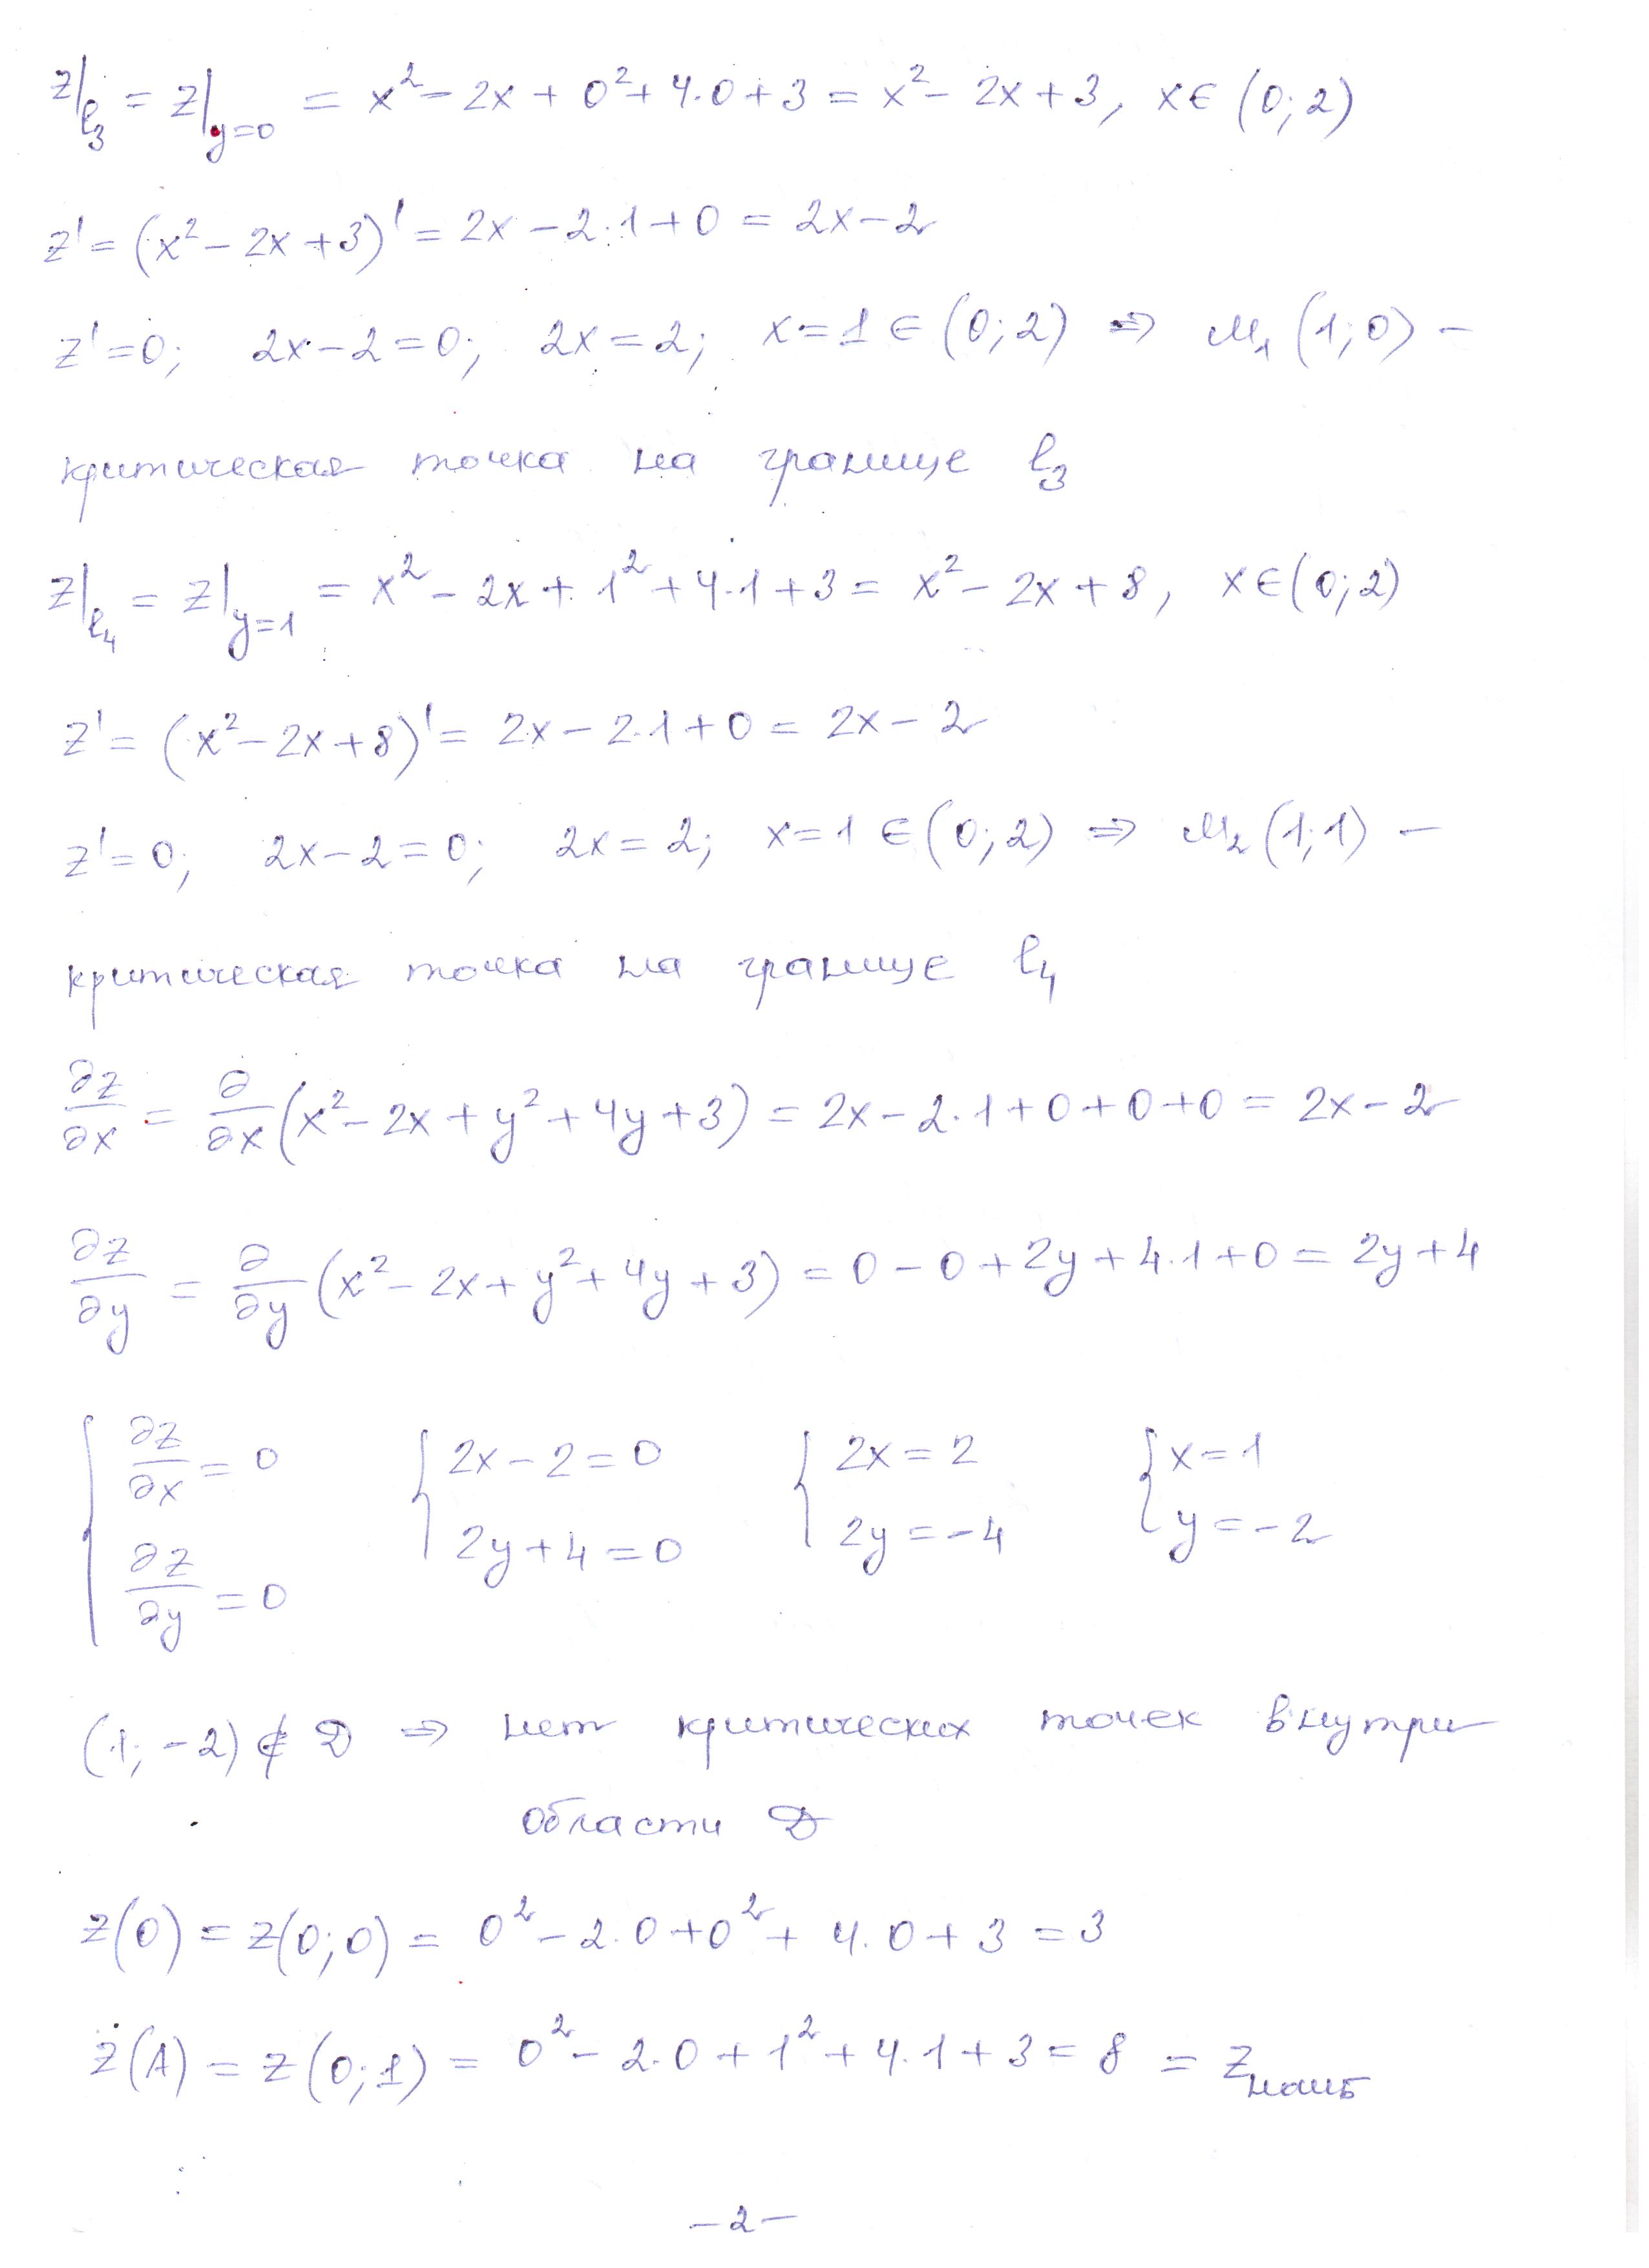 z|l₃ = z|y=0 = x² - 2x + 0² + 4·0 + 3 = x² - 2x + 3, x∈(0;2)
z' = (x² - 2x + 3)' = 2x - 2·1 + 0 = 2x - 2
z' = 0; 2x - 2 = 0; 2x = 2; x = 1 ∈ (0;2) ⇒ M₁(1;0) -
критическая точка на границе l₃
z|l₄ = z|y=1 = x² - 2x + 1² + 4·1 + 3 = x² - 2x + 8, x∈(0;2)
z' = (x² - 2x + 8)' = 2x - 2·1 + 0 = 2x - 2
z' = 0; 2x - 2 = 0; 2x = 2; x = 1 ∈ (0;2) ⇒ M₂(1;1) -
критическая точка на границе l₄
∂z/∂x = ∂/∂x (x² - 2x + y² + 4y + 3) = 2x - 2·1 + 0 + 0 + 0 = 2x - 2
∂z/∂y = ∂/∂y (x² - 2x + y² + 4y + 3) = 0 - 0 + 2y + 4·1 + 0 = 2y + 4
{ ∂z/∂x = 0 { 2x - 2 = 0 { 2x = 2 { x = 1
∂z/∂y = 0 2y + 4 = 0 2y = -4 y = -2
(1; -2) ∉ D ⇒ нет критических точек внутри
области D
z(0) = z(0;0) = 0² - 2·0 + 0² + 4·0 + 3 = 3
z(A) = z(0;1) = 0² - 2·0 + 1² + 4·1 + 3 = 8 = z наиб
- 2 -